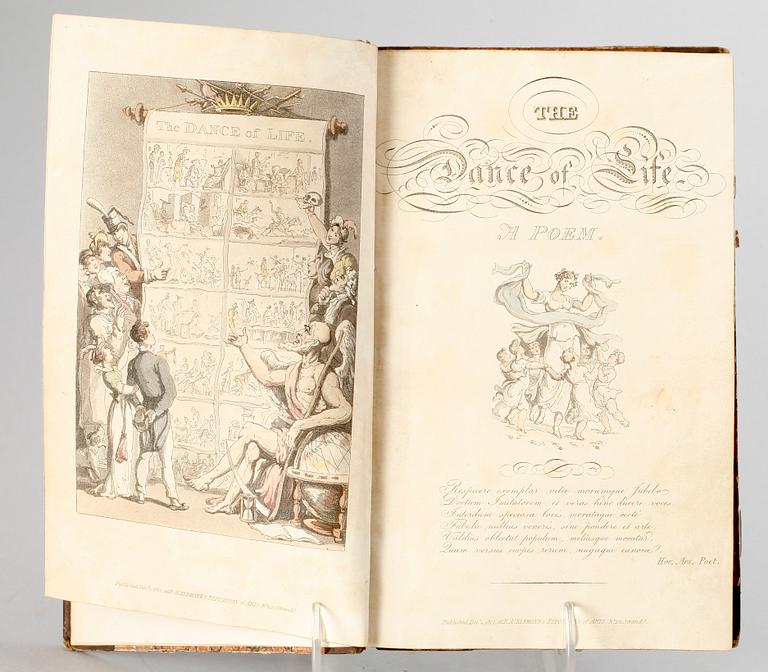 The DANCE of LIFE.
Published Dec.r 1, 1817, at R. ACKERMANN's REPOSITORY of ARTS, No 101, Strand.
THE
Dance of Life.
A POEM.
Respicere exemplar vitæ morumque Jubebo
Doctum Imitatorem et veras hinc ducere voces
Interdum speciosa locis, morataque recté
Fabula nullius veneris, sine pondere et arte,
Valdius oblectat populum, meliusque moratur,
Quam versus inopes rerum, nugæque canoræ.
Hor. Ars. Poet.
Published Dec.r 1, 1817, at R. ACKERMANN's REPOSITORY of ARTS, No 101, Strand.